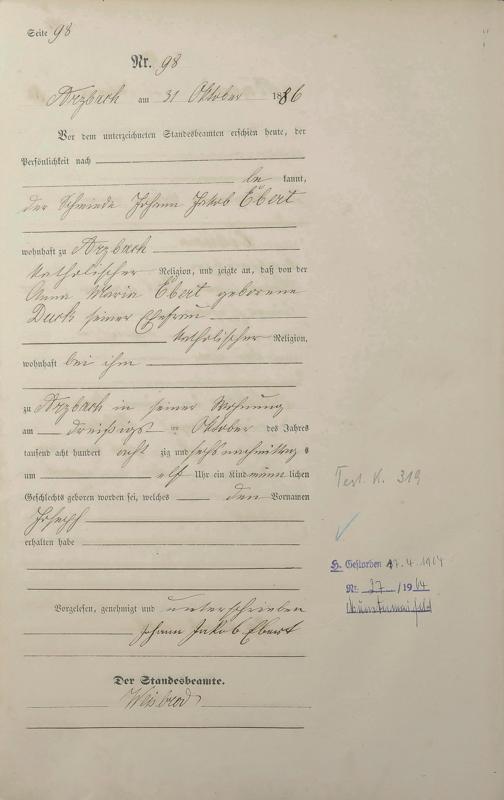 Seite 98
Nr. 98
Arzbach am 31 Oktober 1886
Vor dem unterzeichneten Standesbeamten erschien heute, der
Persönlichkeit nach
be kannt,
der Schmiede Johann Jakob Ebert
wohnhaft zu Arzbach
katholischer Religion, und zeigte an, daß von der
Anna Maria Ebert geborene
seiner Ehefrau
katholischer Religion,
wohnhaft bei ihm
zu Arzbach in seiner Wohnung
am dreißigs ten Oktober des Jahres
tausend acht hundert acht zig und sechs nachmittag s
um elf Uhr ein Kind männ lichen
Geschlechts geboren worden sei, welches den Vornamen
Joseph
erhalten habe
Vorgelesen, genehmigt und unterschrieben
Johann Jakob Ebert
Der Standesbeamte.
Weisbrod
Test. K. 319
H. Gestorben 17.4.1964
Nr. 27 / 1964
Münstermaifeld